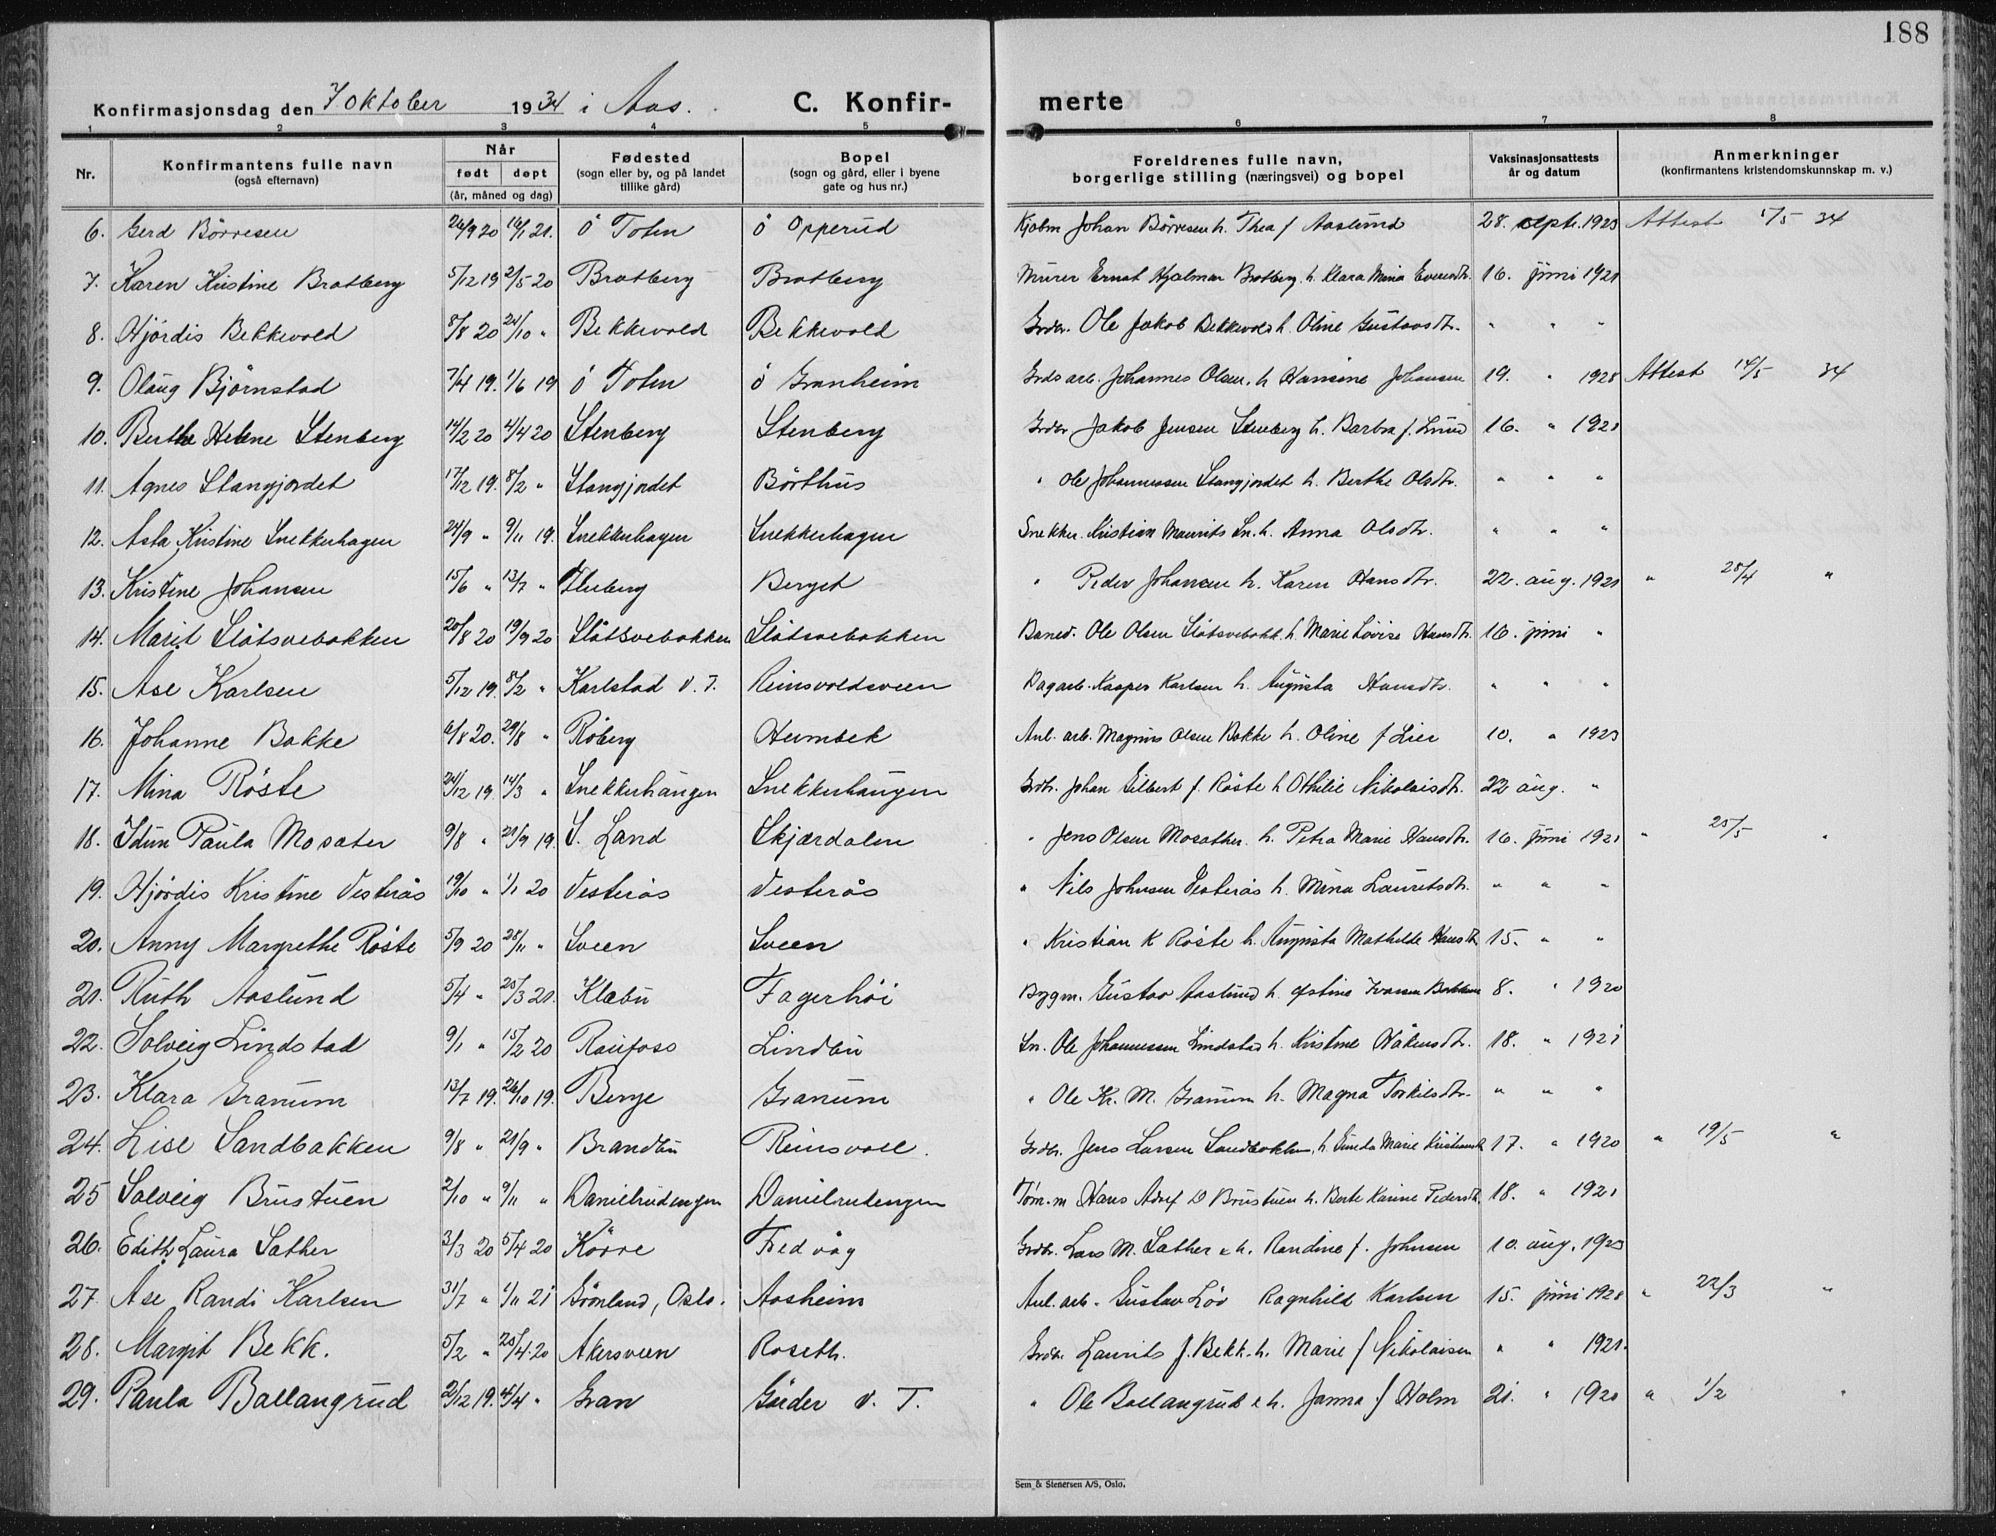 188
Konfirmasjonsdag den 7. oktober 1934 i Aas. C. Konfir-
merte
1 2 3 4 5 6 7 8
Nr. Konfirmantens fulle navn (også efternavn) Når født døpt (år, måned og dag) Fødested (sogn eller by, og på landet tillike gård) Bopel (sogn og gård, eller i byene gate og hus nr.) Foreldrenes fulle navn, borgerlige stilling (næringsvei) og bopel Vaksinasjonsattests år og datum Anmerkninger (konfirmantens kristendomskunnskap m. v.)
6. Gerd Börresen 26/9 20 16/1 21. Ö Toten ö Opperud Johan Börresen h. Thea f Aaslund 28. sept. 1923 Attest 5/5 34
7. Karen Kristine Bratberg 5/12 19 2/5 20 Bratberg Bratberg Murer Ernst Hjalmar Bratberg h. Klara Mina Evensdtr. 16. juni 1921
8. Hjördis Bekkevold 8/8 20 24/10 " Bekkevold Bekkevold Grdbr. Ole Jakob Bekkevold h. Oline Gustavsdtr. " " "
9. Olaug Björnstad 7/4 19. 1/6 19 ö Toten ö Granheim Grds arb. Johannes Olsen. h Hansine Johansen 19. " 1928 Attest 16/5 34
10. Berthe Helene Stenberg 14/2 20 4/4 20 Stenberg Stenberg Grdbr Jakob Jensen Stenberg h. Barbra f. Lund 16. " 1921
11. Agnes Stangjordet 17/12 19. 8/2 " Stangjordet Börthus " Ole Johannessen Stangjordet h. Berthe Olsdtr. " " "
12. Asta Kristine Snekkerhagen 24/9 " 9/11 19. Snekkerhagen Snekkerhagen Snekker. Kristian Maurits Sn. h. Anna Olsdtr. " " "
13. Kristine Johansen 15/6 " 13/7 " Fluberg Berget " Peder Johansen h. Karen Hansdtr. 22. aug. 1921 " 28/4 "
14. Marit Slåtsvebakken 20/8 20 19/9 20 Slåtsvebakken Slåtsvebakken Banev. Ole Olsen Slåtsvebakk. h Marie Lovise Hansdtr. 16. juni "
15. Åse Karlsen 5/12 19. 8/2 " Karlstad V. T. Reinsvoldsveen Dagarb. Kasper Karlsen h. Augusta Hansdtr. " " "
16. Johanne Bakke 6/8 20. 29/8 " Röberg Heimbek Anl. arb. Magnus Olsen Bakke h. Oline f Lier 10. " 1923
17. Mina Röste 24/12 19 14/3 " Snekkerhaugen Snekkerhaugen Grdbr. Johan Eilbert f. Röste h Othilie Nikolaisdtr. 22 aug. "
18. Idun Paula Mosæter 9/8 " 21/9 19. S. Land Skjærdalen " Jens Olsen Mosæther. h. Petra Marie Hansdtr. 16. juni 1921 " 25/5 "
19. Hjördis Kristine Vesterås 19/10 " 1/1 20 Vesterås Vesterås " Nils Johnsen Vesterås h. Mina Lauritsdtr. " " "
20. Anny Margrethe Röste 5/9 20 28/11 " Sveen Sveen " Kristian K Röste h. Augusta Mathilde Hansdtr 15. " "
21. Ruth Aaslund 5/4 " 25/3 21. Klæbu Fagerhöi Byggm. Gustav Aaslund h. Bakken 8. " 1920
22. Solveig Lindstad 9/1 " 15/2 20 Raufoss Lindbu Sn. Ole Johannessen Lindstad h. Kristine Håkensdtr. 18. " 1921
23. Klara Granum 13/7 19. 26/10 19. Berge Granum " Ole Kr. M. Granum h. Magna Torkilsdtr. " " "
24. Lise Sandbakken 9/8 " 21/9 " Brandbu Reinsvoll. Grdbr. Jens Larsen Sandbakken, h. Marie 17. " 1920 " 19/5 "
25 Solveig Brustuen 2/10 " 9/11 " Danielrudengen Danielrudengen Töm. m Hans Adolf D Brustuen h. Berte Karine Pedersdtr. 18. " 1921
26. Edith Laura Sæther 3/3 20 5/4 20 Körve Fredvåg Grdbr. Lars M. Sæther & h. Randine f. Johnsen 10. aug. 1923
27. Åse Randi Karlsen 31/7 " 1/11 21 Grönland, Oslo. Aasheim Anl. arb. Gustav Löv Ragnhild Karlsen 15. juni 1928 " 22/3 "
28. Margit Bekk. 5/2 " 25/4 20 Akersveen Roseth. Grdbr. Laurits J. Bekk. h. Marie f Nikolaisen " " 1921.
29. Paula Ballangrud 2/12 19. 4/4 " Gran Gårder V. T. " Ole Ballangrud & h. Janna f Holm 21. " 1920 " 1/2 "
Sem & Stenersen A/S, Oslo.